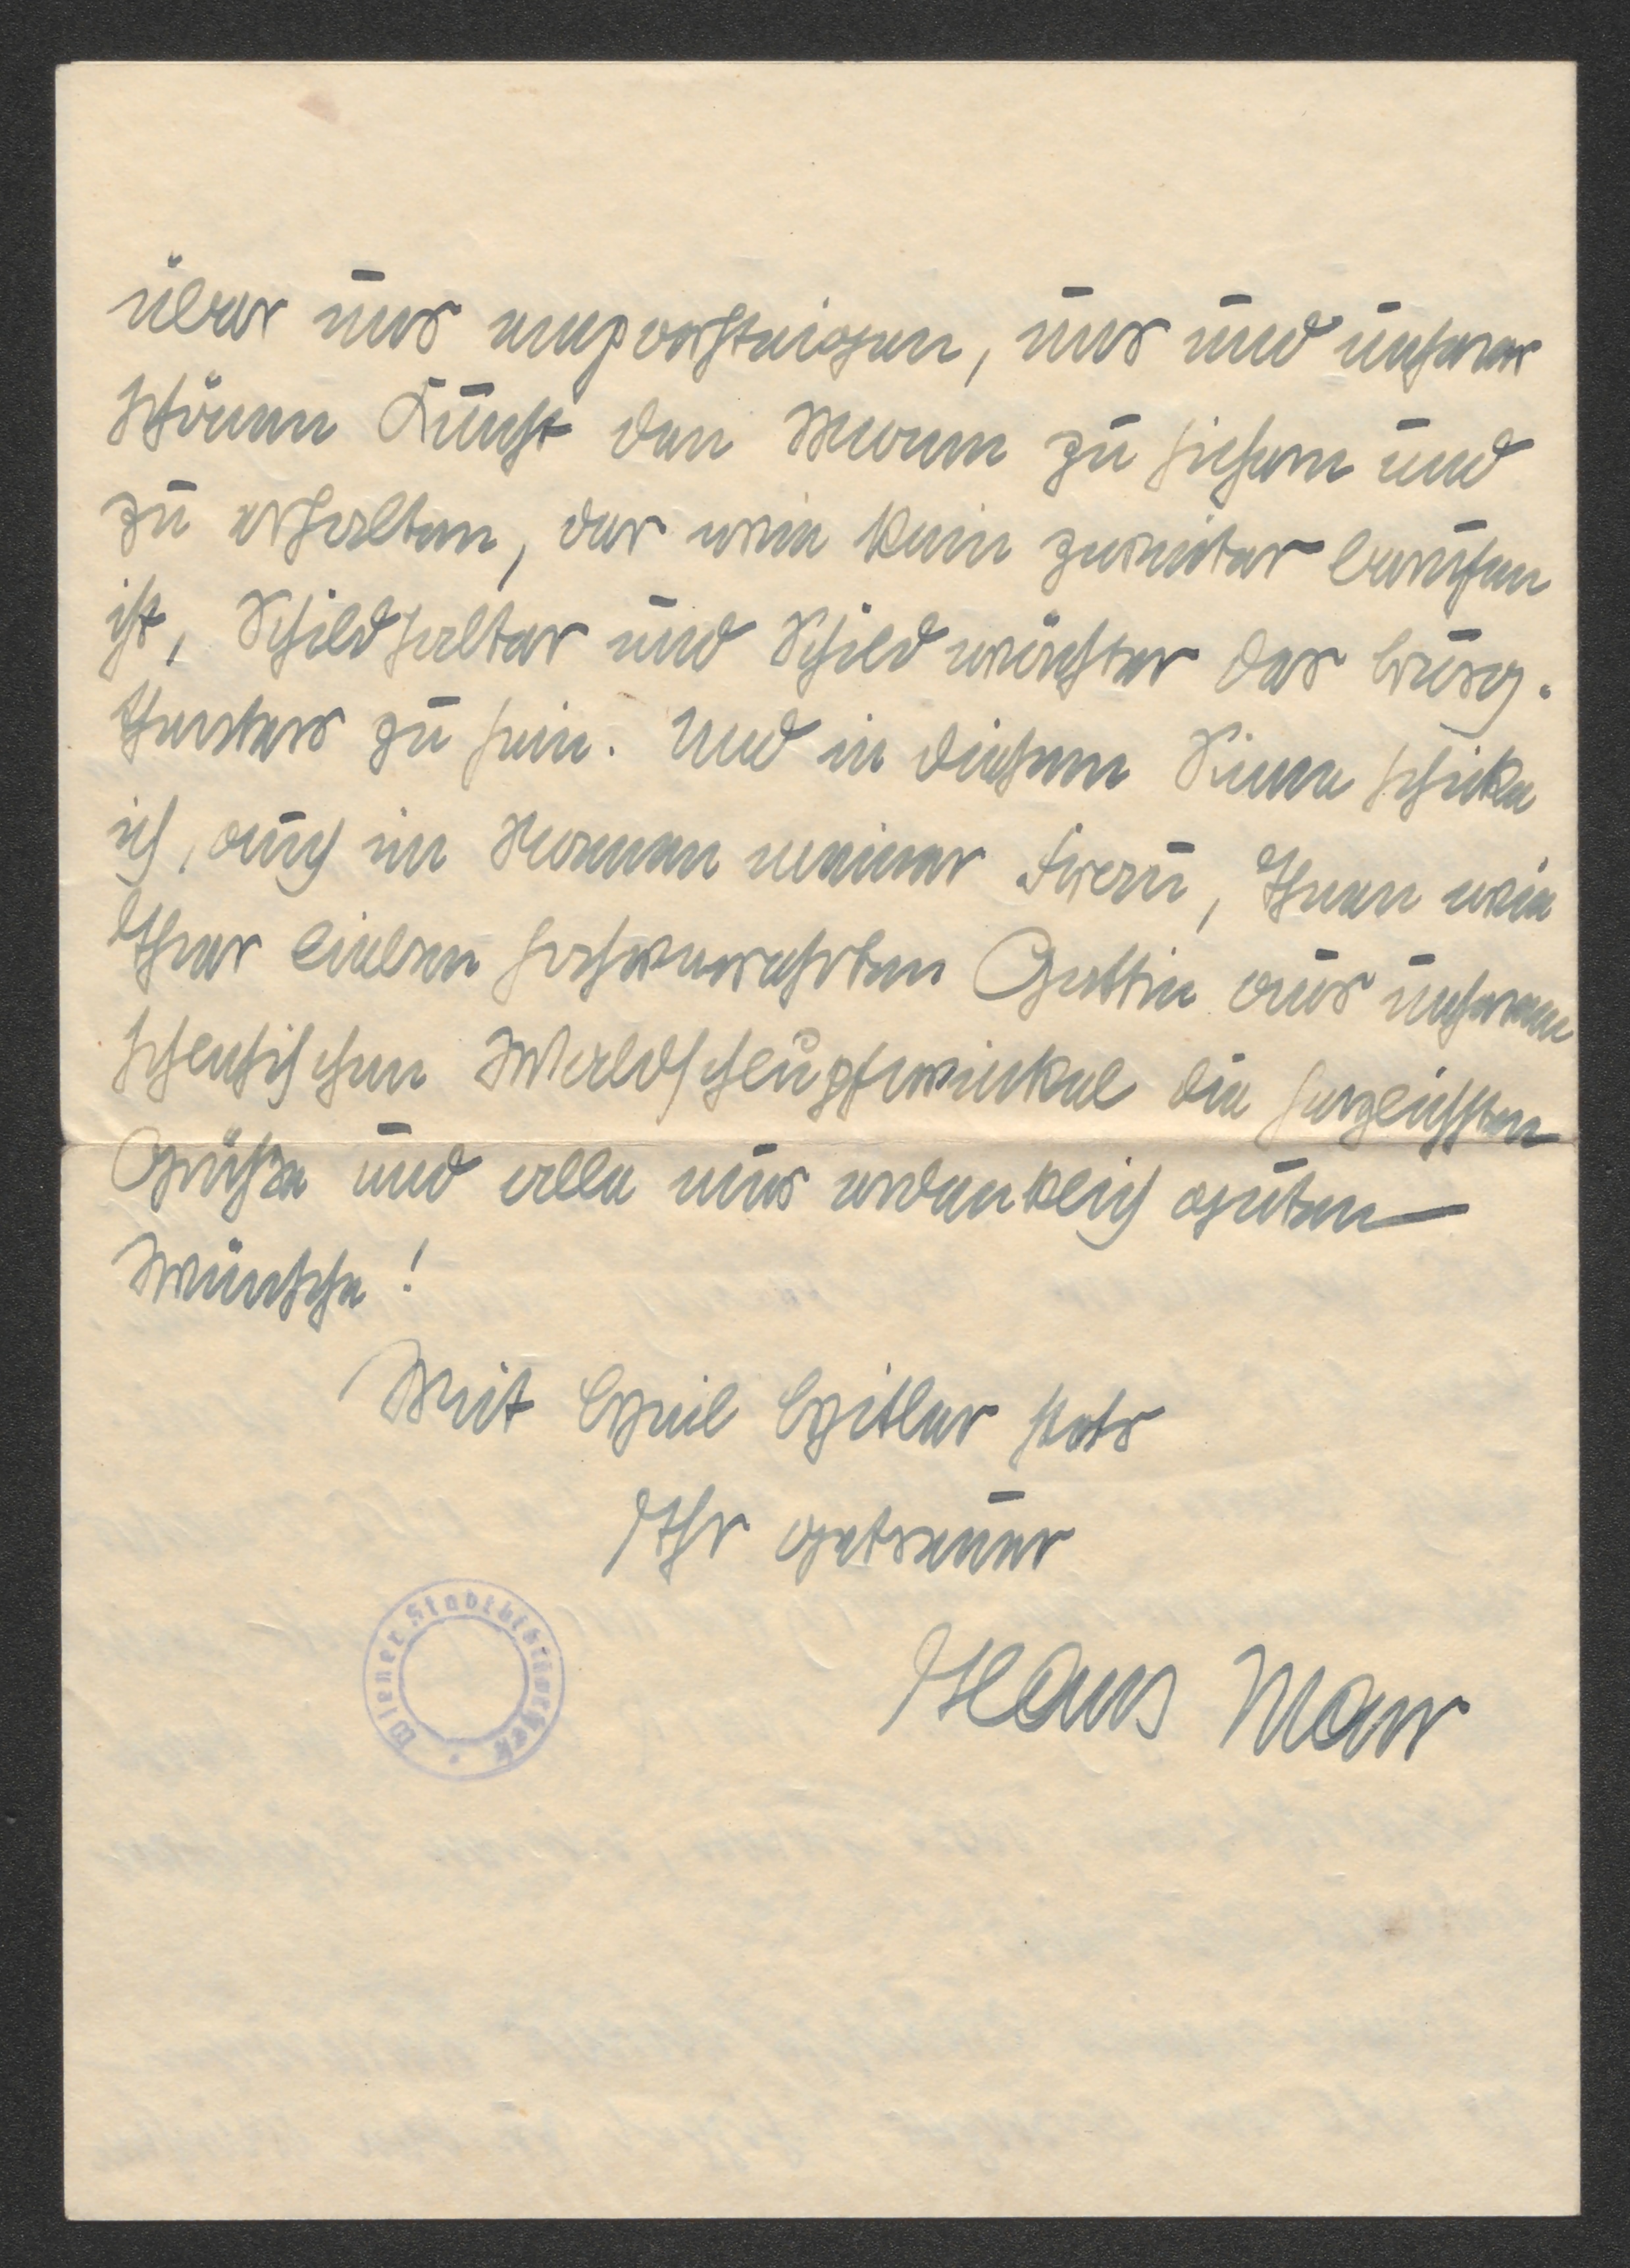 über uns emporsteigen, uns und unserer
schönen Kunst den Mann zu sichern und
zu erhalten, der wie kein zweiter berufen
ist, Schildhalter und Schildwächter des Burg-
theaters zu sein. Und in diesem Sinne schicke
ich, auch im Namen meiner Frau, Ihnen wie
Ihrer lieben hochverehrten Gattin aus unserem
schlesischen Waldschlupfwinkel die herzlichsten
Grüße und alle nur erdenklich guten
Wünsche!
Mit Heil Hitler stets
Ihr getreuer
Hans
Wiener Stadtbibliothek